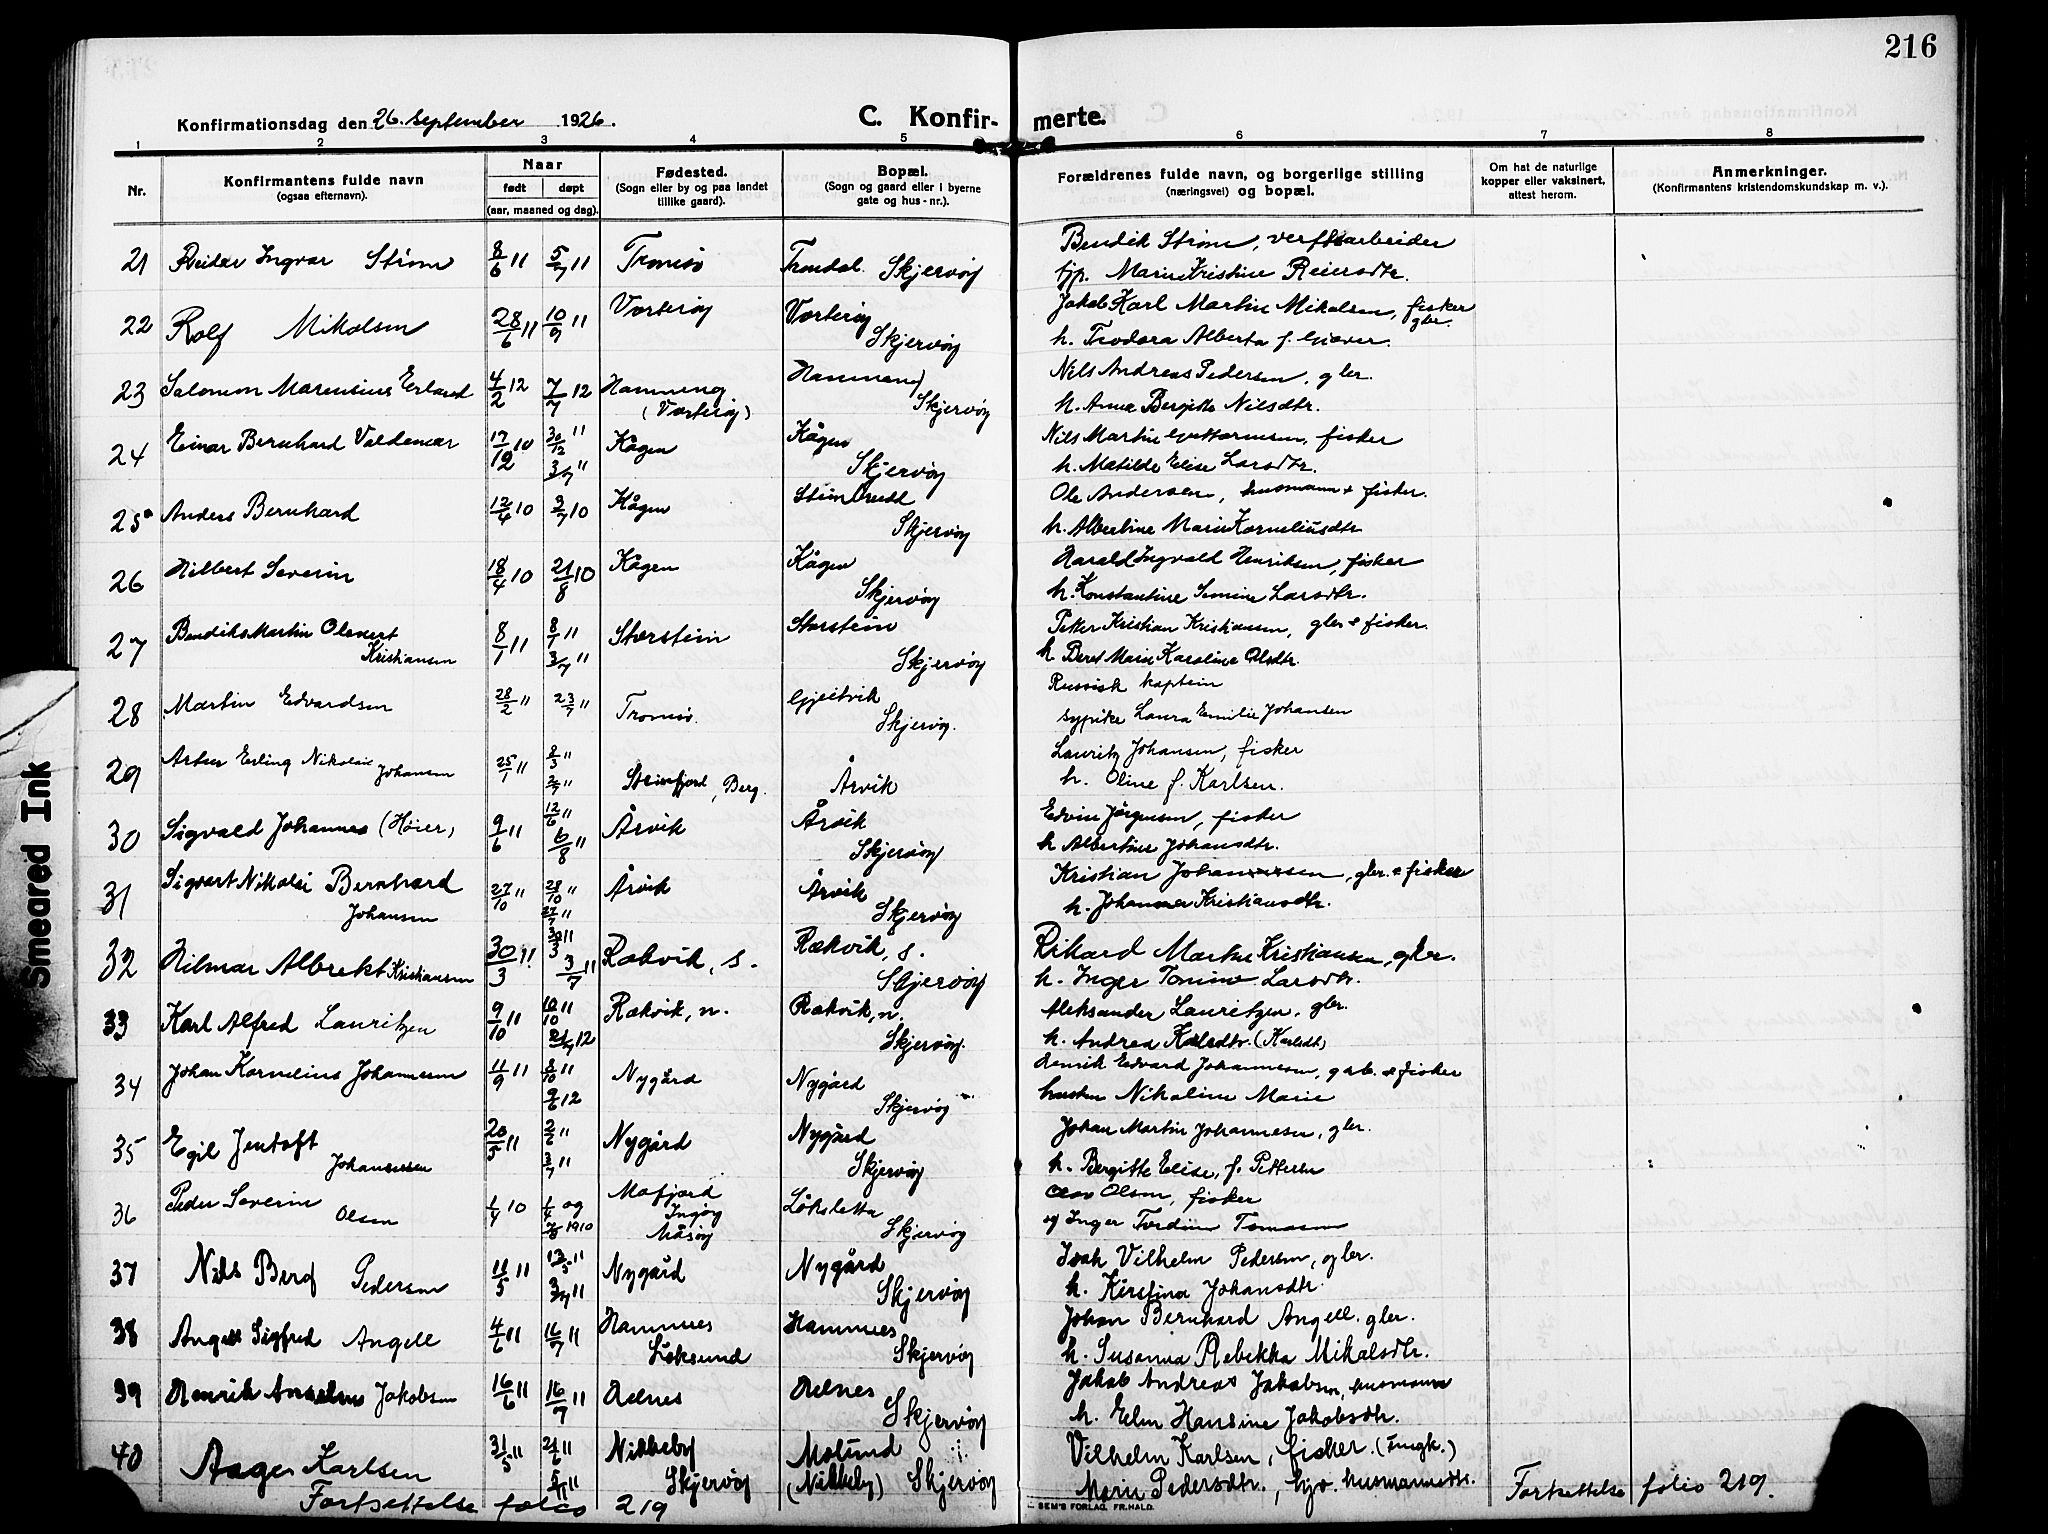 216
Konfirmationsdag den 26. september 1926.
C. Konfirmerte.
1 2 3 4 5 6 7 8
Nr.
Konfirmantens fulde navn
(ogsaa efternavn).
Naar
født døpt
(aar, maaned og dag).
Fødested.
(Sogn eller by og paa landet
tillike gaard).
Bopæl.
(Sogn og gaard eller i byerne
gate og hus-nr.).
Forældrenes fulde navn, og borgerlige stilling
(næringsvei) og bopæl.
Om hat de naturlige
kopper eller vaksinert,
attest herom.
Anmerkninger.
(Konfirmantens kristendomskundskap m. v.).
21 Reidar Ingvar Strøm 8/6 11 5/7 11 Tromsø Trondal. Skjervøy
Bendik Strøm, verftsarbeider
Marie Kristine Reiersdtr.
22 Rolf Mikalsen 28/6 11 10/9 11 Vorterøy Vorterøy Skjervøy
Jakob Karl Martin Mikalsen, fisker
gbr.
h. Teodora Alberta f. Giæver.
23 Salomon Marensius Erland 4/2 12 7/7 12 Hamneng (Vorterøy) Skjervøy
Nils Andreas Pedersen, gbr.
h. Anna Bergitte Nilsdtr.
24 Einar Bernhard Valdemar 17/12 10 30/12 " 3/7 " Kågen Kågen Skjervøy
Nils Martin Guttormsen, fisker
h. Matilde Elise Larsdtr.
25 Anders Bernhard 12/4 10 3/7 10 Kågen Skjervøy
Ole Andersen, husmann & fisker.
h. Albertine Marie Korneliusdtr
26 Hilbert Severin 18/4 10 21/8 10 Kågen Kågen Skjervøy
Harald Ingvald Henriksen, fisker
h. Konstantine Larsdtr.
27 Bendiks Martin Olenert Kristiansen 8/1 11 8/1 " 3/7 " Storstein Storstein Skjervøy
Petter Kristian Kristiansen, gbr & fisker.
h Beret Marie Karoline Olsdtr.
28 Martin Edvardsen 28/2 " 23/7 " Tromsø. Gjeitvik Skjervøy.
Russisk kaptein
sypike Laura Emilie Johansen
29 Artur Erling Nikolai Johansen 25/1 " Steinfjord, Berg. Årvik
Lauritz Johansen, fisker
h. Oline f. Karlsen.
30 Sigvald Johannes (Høier) 9/6 11 12/6 " 6/8 " Årvik Årvik Skjervøy
Edvin Jørgensen, fisker
h Albertine Johansdtr.
31 Sigvart Nikolai Bernhard Johansen 27/10 " 28/10 " Årvik Årvik Skjervøy
Kristian Johannessen, gbr. & fisker
h. Johanna Kristiansdtr.
32 Hilmar Albrekt Kristiansen 30/3 11. 30/3 11 3/7 11 Rækvik, s. Rækvik, s. Skjervøy
Rikard Martin Kristiansen, gbr.
h. Inger Tonine Larsdtr.
33 Karl Alfred Lauritzen 9/10 11 10/10 " 12 Rækvik, n. Rækvik, n. Skjervøy.
Aleksander Lauritzen, gbr.
h. Andrea Karlsdtr. (Karlsdt)
34 Johan Kornelius Johannesen 11/9 11 8/10 " 9/6 12 Nygård Nygård Skjervøy
Henrik Edvard Johannesen, & fisker
hustru Nikoline Marie
35 Egil Jentoft Johannessen 20/5 11 2/6 " 3/7 " Nygård Nygård Skjervøy
Johan Martin Johannesen, gbr.
h. Bergitte Elise, f. Pettersen
36 Peder Severin Olsen 1/4 10 1/4 og 1910 Mafjord Ingøy Måsøy Løksletta Skjervøy
Olsen, fisker
og Inger Tomasen
37 Nils Berg Pedersen 11/5 11 13/5 11 3/7 11 Nygård Nygård Skjervøy
Isak Vilhelm Pedersen, gbr.
h. Kirstina Johansdtr.
38 Angell Sigfred Angell 4/6 11 16/7 11 Hamnes Hamnes Skjervøy
Johan Bernhard Angell. gbr.
h. Susanna Rebekka Mikalsdtr.
39 Henrik Anselm Jakobsen 16/6 11 16/7 11 Skjervøy
Jakob Andreas Jakobsen, husmann
h. Elen Hansine Jakobsdtr.
40 Aage Karlsen 31/5 11 Nikkeby Skjervøy (Nikkeby) Skjervøy
Vilhelm Karlsen, fisker. (Ungk.)
Marie Pedersdtr., husmannsdtr.
Fortsettelse folio 219
Fortsettelse folio 219.
SEM'S FORLAG. FR. HALD.
Smeared Ink